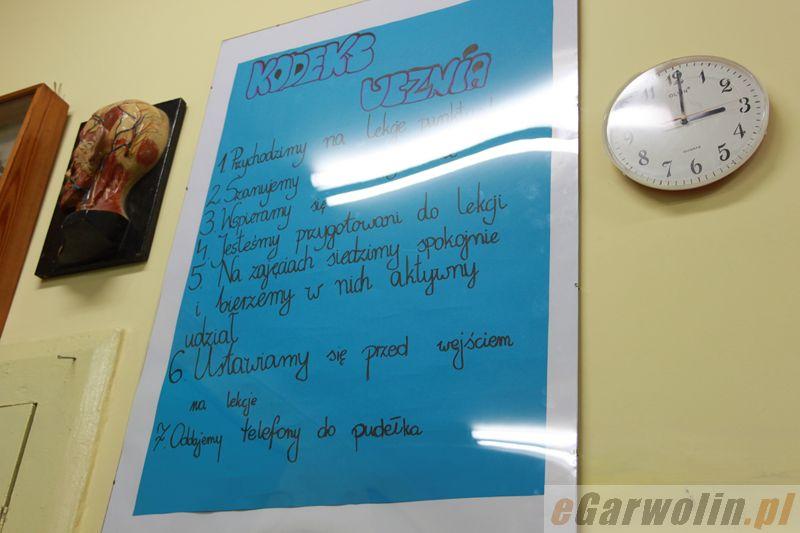 KODEKS
UCZNIA
1. Przychodzimy na lekcje
2. Szanujemy
3. Wspieramy się
4. Jesteśmy przygotowani do lekcji
5. Na zajęciach siedzimy spokojnie
i bierzemy w nich aktywny
udział
6. Ustawiamy się przed wejściem
na lekcje
7. Oddajemy telefony do pudełka
12 1 2 3 4 5 6 7 8 9 10 11
QUARTZ
eGarwolin.pl